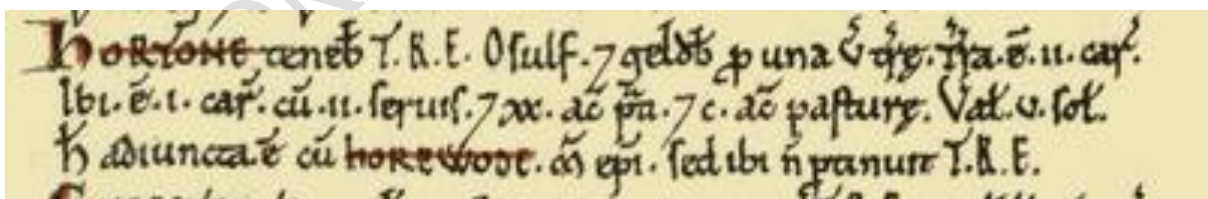 HORTONE teneb̄ T.R.E. Osulf. ⁊ geldb̄ ꝓ una v̓ tr̄ę. Tr̄a.ē.ii.car̓.
Ibi.ē.i.car̓.cū.ii.seruis.⁊ xx.ac̄ p̄a.⁊ c.ac̄ pasturę. Val̓.v.sol̓.
H̄ adiuncta.ē cū HOREWODE.M̄ ep̄i.sed ibi n̄ ptinuit T.R.E.